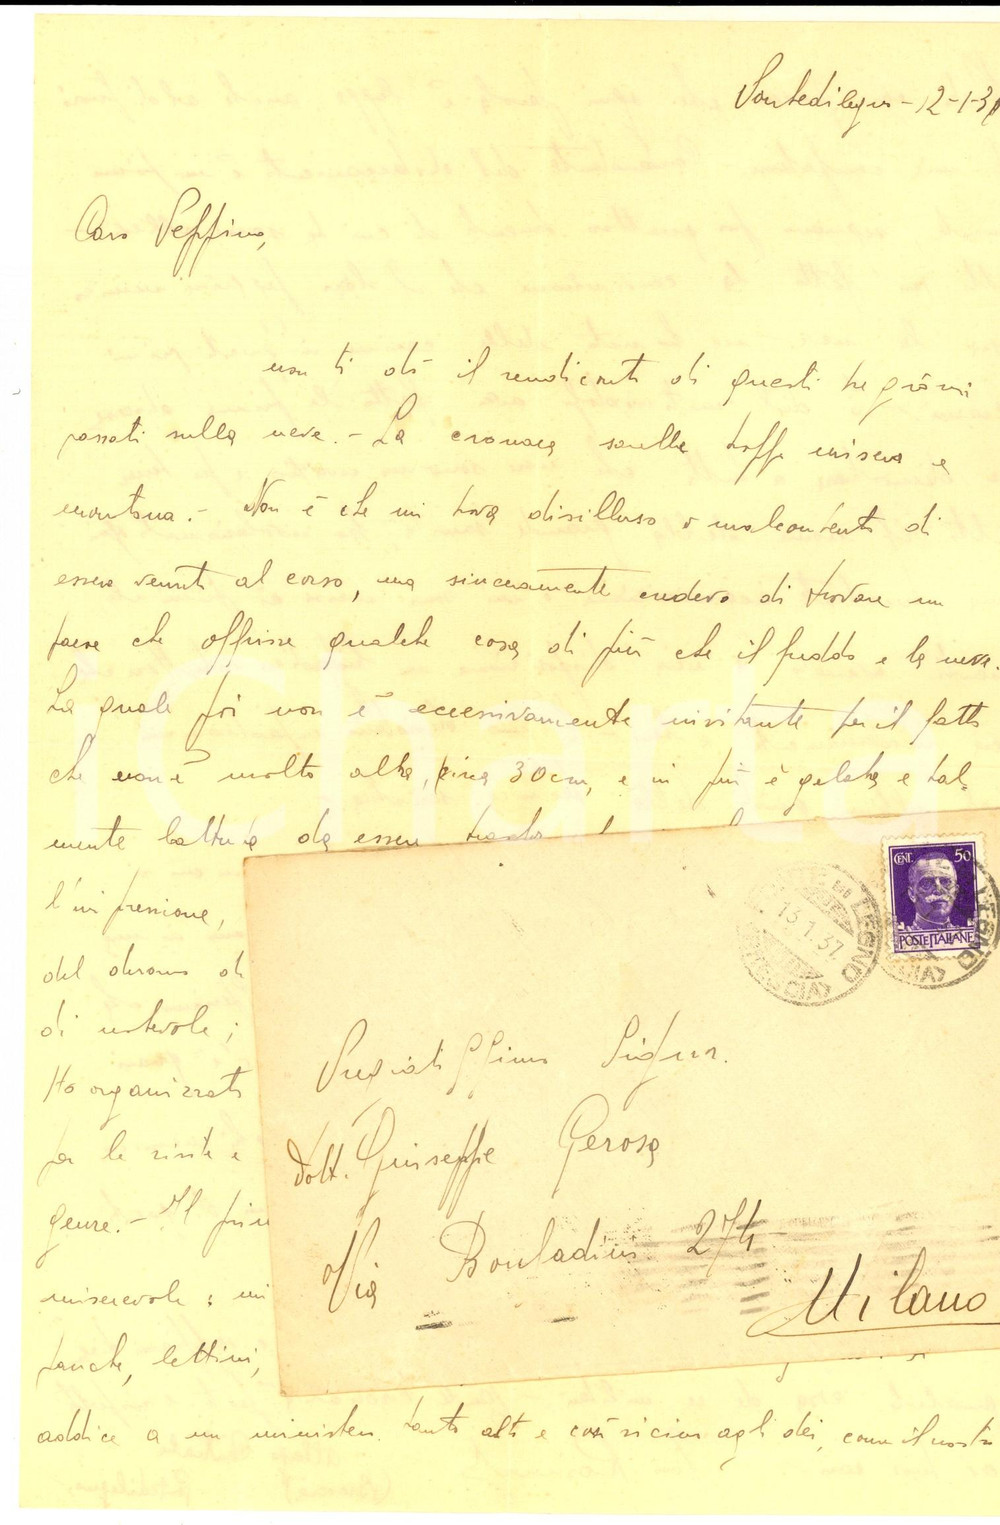 Pontedilegno - 12-1-37
Caro Peppino,
non ti dò il rendiconto di questi tre giorni
passati sulla neve. - La cronaca sarebbe troppo misera e
montana. - Non è che mi trovi disilluso o malcontento di
essere venuto al corso, ma sinceramente credevo di trovare un
paese che offrisse qualche cosa di più che il freddo e la neve.
La quale poi non è eccessivamente invitante per il fatto
che non è molto alta, circa 30cm, e in più è gelata e tal=
mente battuta da essere
l'impressione,
del
di notevole;
Ho organizzato
per le visite e
genere. - Il
miserevole: mi
panche, lettini,
addice a un ministero tanto alto e così vicino agli dei, come il nostro
CENT. 50
POSTE ITALIANE
13.1.37.
LEGNO
(BRESCIA)
Pregiatissimo Signor.
Dott. Giuseppe Gerosa
Via 274
Milano